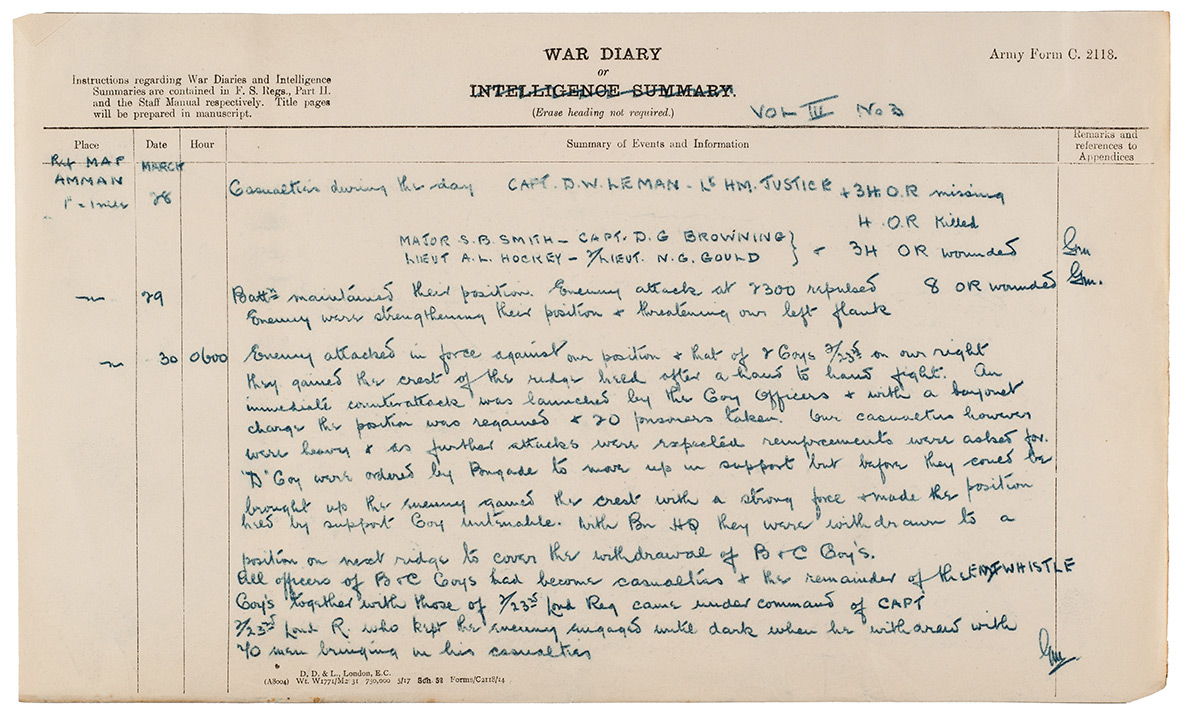 WAR DIARY
or
INTELLIGENCE SUMMARY.
(Erase heading not required.)
Army Form C. 2118.
Instructions regarding War Diaries and Intelligence
Summaries are contained in F. S. Regs., Part II.
and the Staff Manual respectively. Title pages
will be prepared in manuscript.
VOL III No 3
Place Date Hour Summary of Events and Information Remarks and
references to
Appendices
Ref MAP MARCH
AMMAN 28 Casualties during the day CAPT. D.W. LEMAN - Lt HM. JUSTICE + 34 O.R missing
1" = 1 mile
4 O.R Killed
MAJOR S.B. SMITH - CAPT. D.G BROWNING }
LIEUT A.L. HOCKEY - 2/LIEUT. N.G. GOULD } + 34 OR wounded Gm
~ 29 Battn maintained their position. Enemy attack at 2300 repulsed 8 OR wounded Gm.
Enemy were strengthening their position + threatening our left flank
~ 30 0600 Enemy attacked in force against our position + that of 2 Coys 2/23rd on our right
they gained the crest of the ridge held after a hand to hand fight. An
immediate counterattack was launched by the Coy Officers + with a bayonet
charge the position was regained + 20 prisoners taken. Our casualties however
were heavy + as further attacks were expected reinforcements were asked for.
"D" Coy were ordered by Brigade to move up in support but before they could be
brought up the enemy gained the crest with a strong force + made the position
held by support Coy untenable. With Bn HQ they were withdrawn to a
position on next ridge to cover the withdrawal of B + C Coy's.
All officers of B + C Coys had become casualties + the remainder of these
Coy's together with those of 2/23rd Lond Reg came under command of CAPT ENTWHISTLE
2/23rd Lond R. who kept the enemy engaged until dark when he withdrew with
70 men bringing in his casualties Gm
D. D. & L., London, E.C.
(A8004) Wt. W1771/M2 31 750,000 5/17 Sch 52 Forms/C2118/14